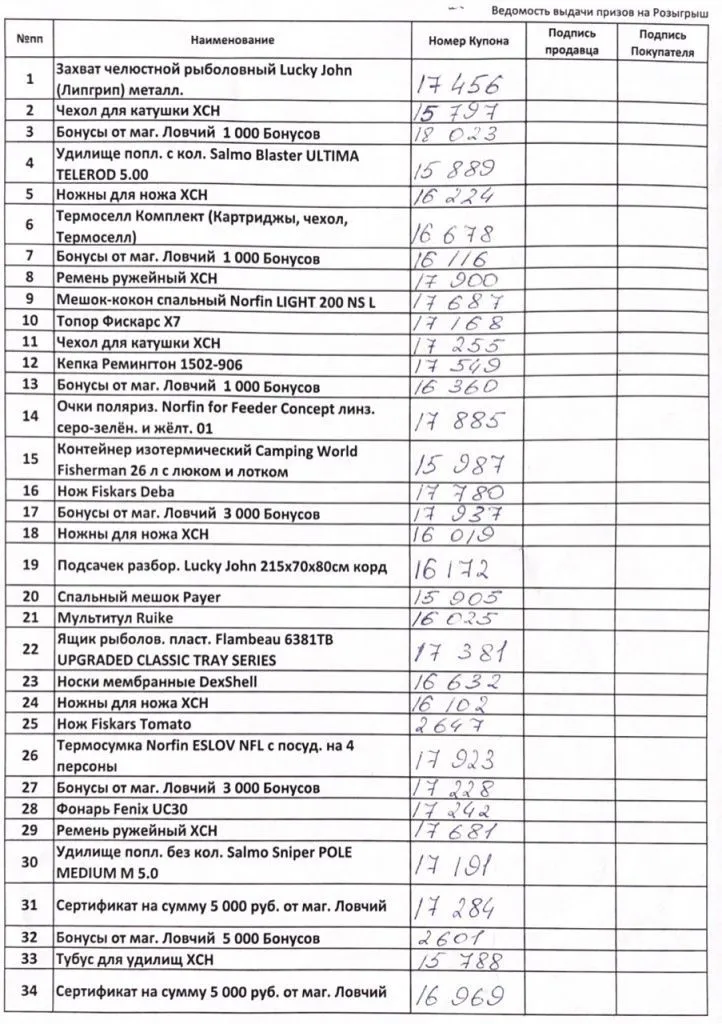 Ведомость выдачи призов на Розыгрыш
№пп Наименование Номер Купона Подпись продавца Подпись Покупателя
1 Захват челюстной рыболовный Lucky John
(Липгрип) металл. 17 456
2 Чехол для катушки ХСН 15 797
3 Бонусы от маг. Ловчий 1 000 Бонусов 18 023
4 Удилище попл. с кол. Salmo Blaster ULTIMA
TELEROD 5.00 15 889
5 Ножны для ножа ХСН 16 224
6 Термоселл Комплект (Картриджы, чехол,
Термоселл) 16 678
7 Бонусы от маг. Ловчий 1 000 Бонусов 16 116
8 Ремень ружейный ХСН 17 900
9 Мешок-кокон спальный Norfin LIGHT 200 NS L 17 687
10 Топор Фискарс X7 17 168
11 Чехол для катушки ХСН 17 255
12 Кепка Ремингтон 1502-906 17 549
13 Бонусы от маг. Ловчий 1 000 Бонусов 16 360
14 Очки поляриз. Norfin for Feeder Concept линз.
серо-зелён. и жёлт. 01 17 885
15 Контейнер изотермический Camping World
Fisherman 26 л с люком и лотком 15 987
16 Нож Fiskars Deba 17 780
17 Бонусы от маг. Ловчий 3 000 Бонусов 17 937
18 Ножны для ножа ХСН 16 019
19 Подсачек разбор. Lucky John 215х70х80см корд 16 172
20 Спальный мешок Payer 15 905
21 Мультитул Ruike 16 025
22 Ящик рыболов. пласт. Flambeau 6381TB
UPGRADED CLASSIC TRAY SERIES 17 381
23 Носки мембранные DexShell 16 632
24 Ножны для ножа ХСН 16 102
25 Нож Fiskars Tomato 2647
26 Термосумка Norfin ESLOV NFL с посуд. на 4
персоны 17 923
27 Бонусы от маг. Ловчий 3 000 Бонусов 17 228
28 Фонарь Fenix UC30 17 242
29 Ремень ружейный ХСН 17 681
30 Удилище попл. без кол. Salmo Sniper POLE
MEDIUM M 5.0 17 191
31 Сертификат на сумму 5 000 руб. от маг. Ловчий 17 284
32 Бонусы от маг. Ловчий 5 000 Бонусов 2601
33 Тубус для удилищ ХСН 15 788
34 Сертификат на сумму 5 000 руб. от маг. Ловчий 16 969